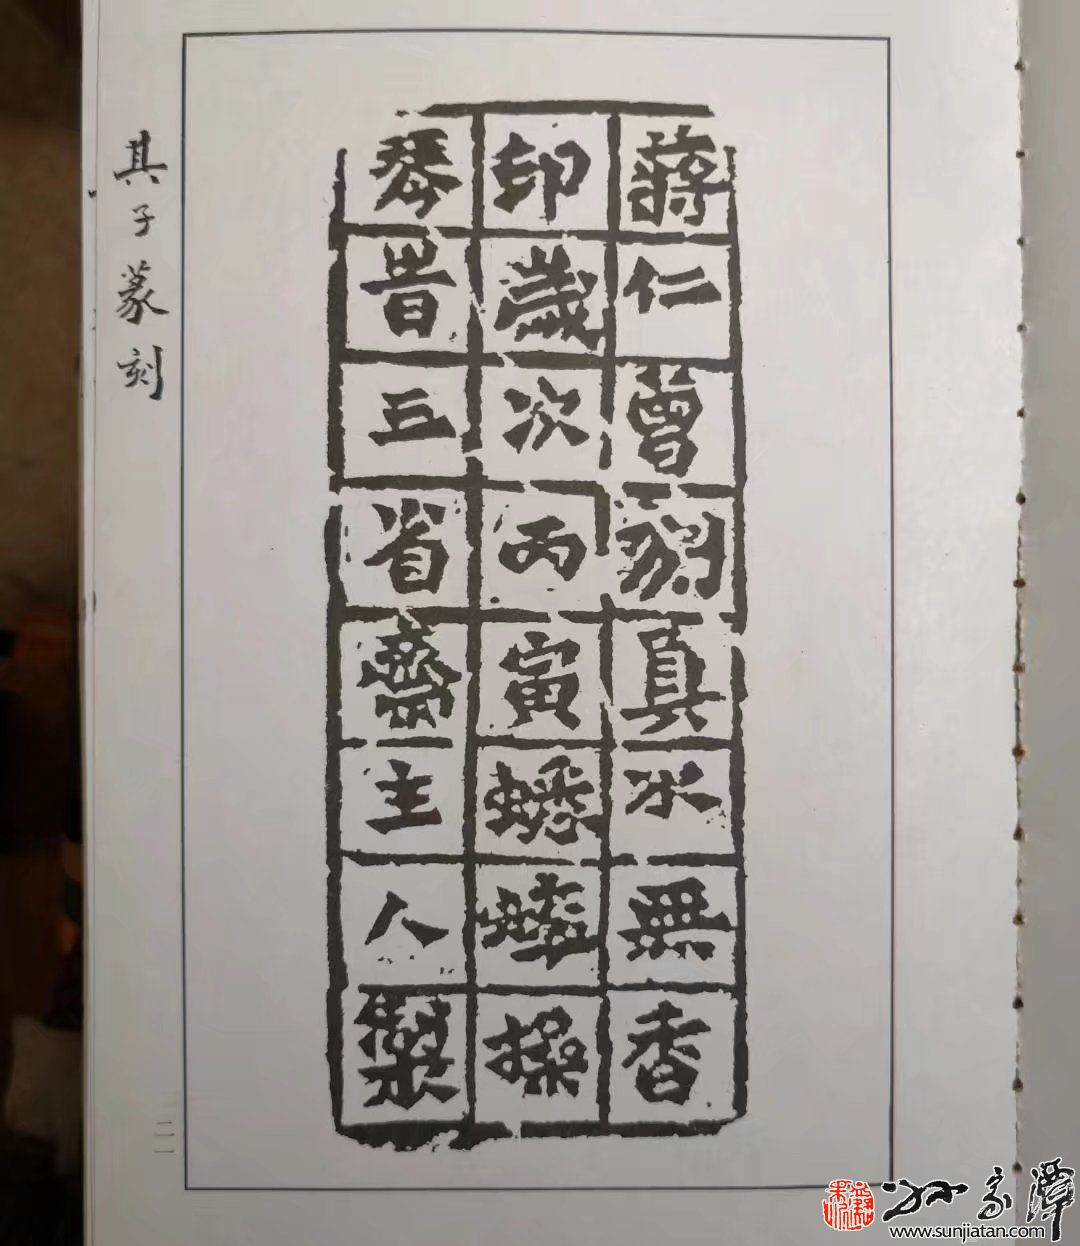 蔣仁曾刻真水無香
印歲次丙寅蟋蟀操
琴旹三省齋主人製
其子篆刻
孙家潭
www.sunjiatan.com